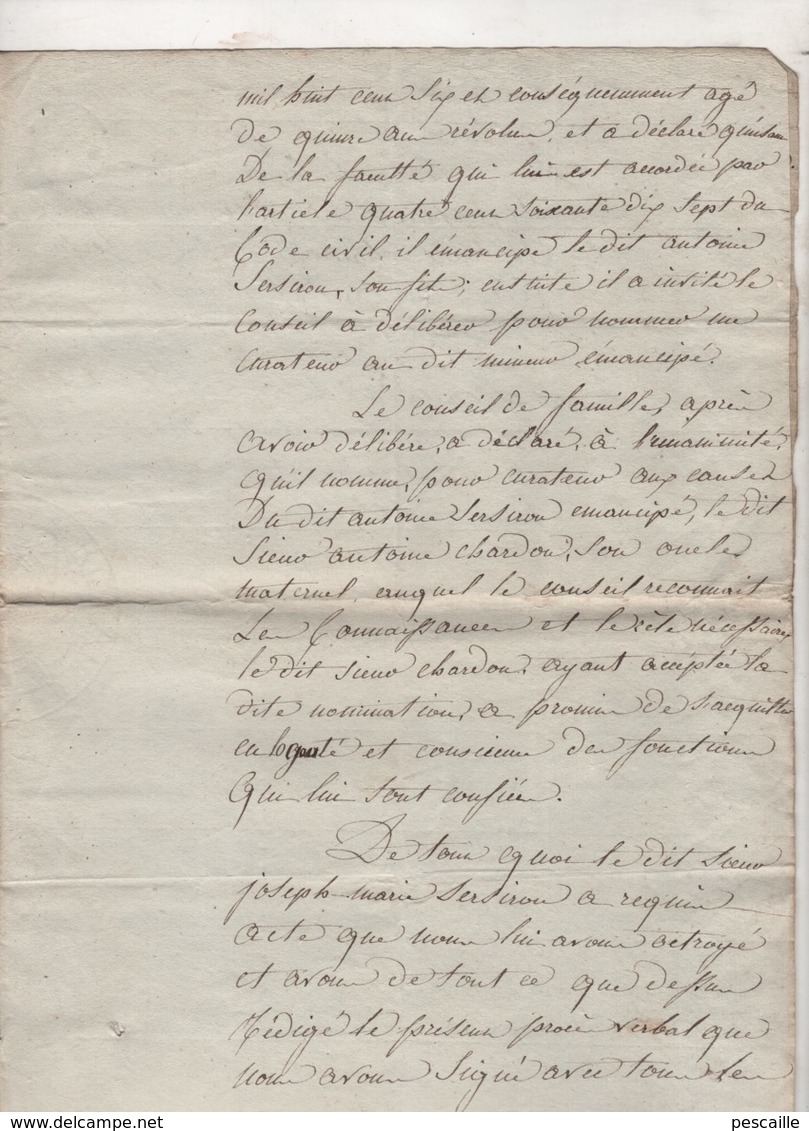 mil huit cent six et conséquemment agé
de quinze ans révolus, et a déclaré qu'usant
De la faculté qui lui est accordée par
l'article quatre cent soixante dix sept du
Code civil, il émancipe le dit antoine
Sersiron, son fils; ensuite il a invité le
Conseil à délibérer pour nommer un
Curateur au dit mineur émancipé.
Le conseil de famille, après
avoir délibéré, a déclaré, à l'unanimité,
qu'il nomme, pour curateur aux causes
Du dit antoine Sersiron emancipé, le dit
Sieur antoine chardon, son oncle
maternel, auquel le conseil reconnait
Les Connaissances et le zèle nécessaires
le dit sieur chardon, ayant acceptée la
dite nomination, a promis de s'acquitter
en loyauté et consience des fonctions
Qui lui sont confiées.
De tous quoi le dit sieur
joseph-marie Sersiron a requis
acte que nous lui avons octroyé
et avons de tout ce que dessus
Rédigé le présent procès verbal que
nous avons signé avec tous les
pescaille